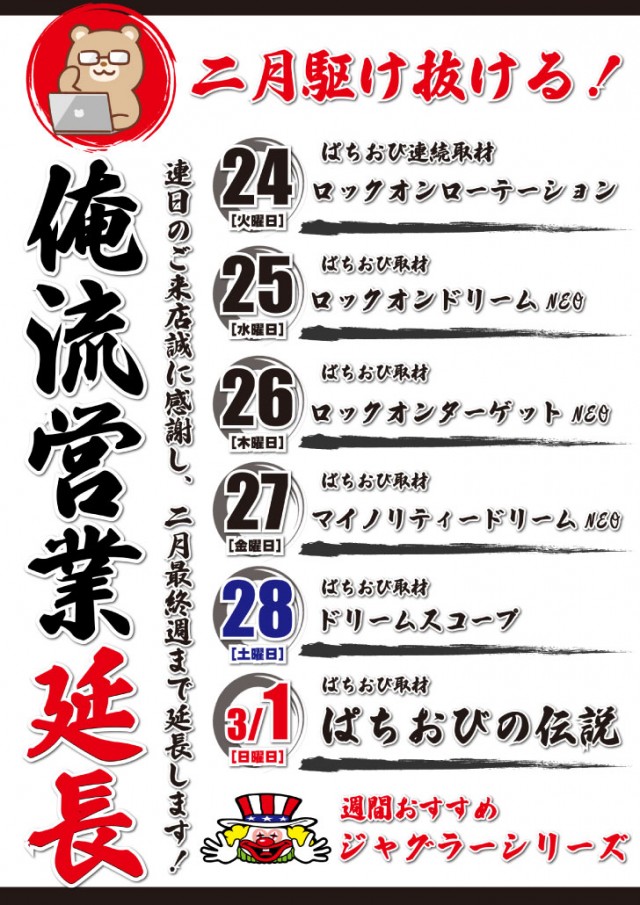 二月駆け抜ける！
俺流営業延長
連日のご来店誠に感謝し、二月最終週まで延長します！
24
[火曜日]
ぱちおび連続取材
ロックオンローテーション
25
[水曜日]
ぱちおび取材
ロックオンドリーム NEO
26
[木曜日]
ぱちおび取材
ロックオンターゲット NEO
27
[金曜日]
ぱちおび取材
マイノリティードリーム NEO
28
[土曜日]
ぱちおび取材
ドリームスコープ
3/1
[日曜日]
ぱちおび取材
ぱちおびの伝説
週間おすすめ
ジャグラーシリーズ